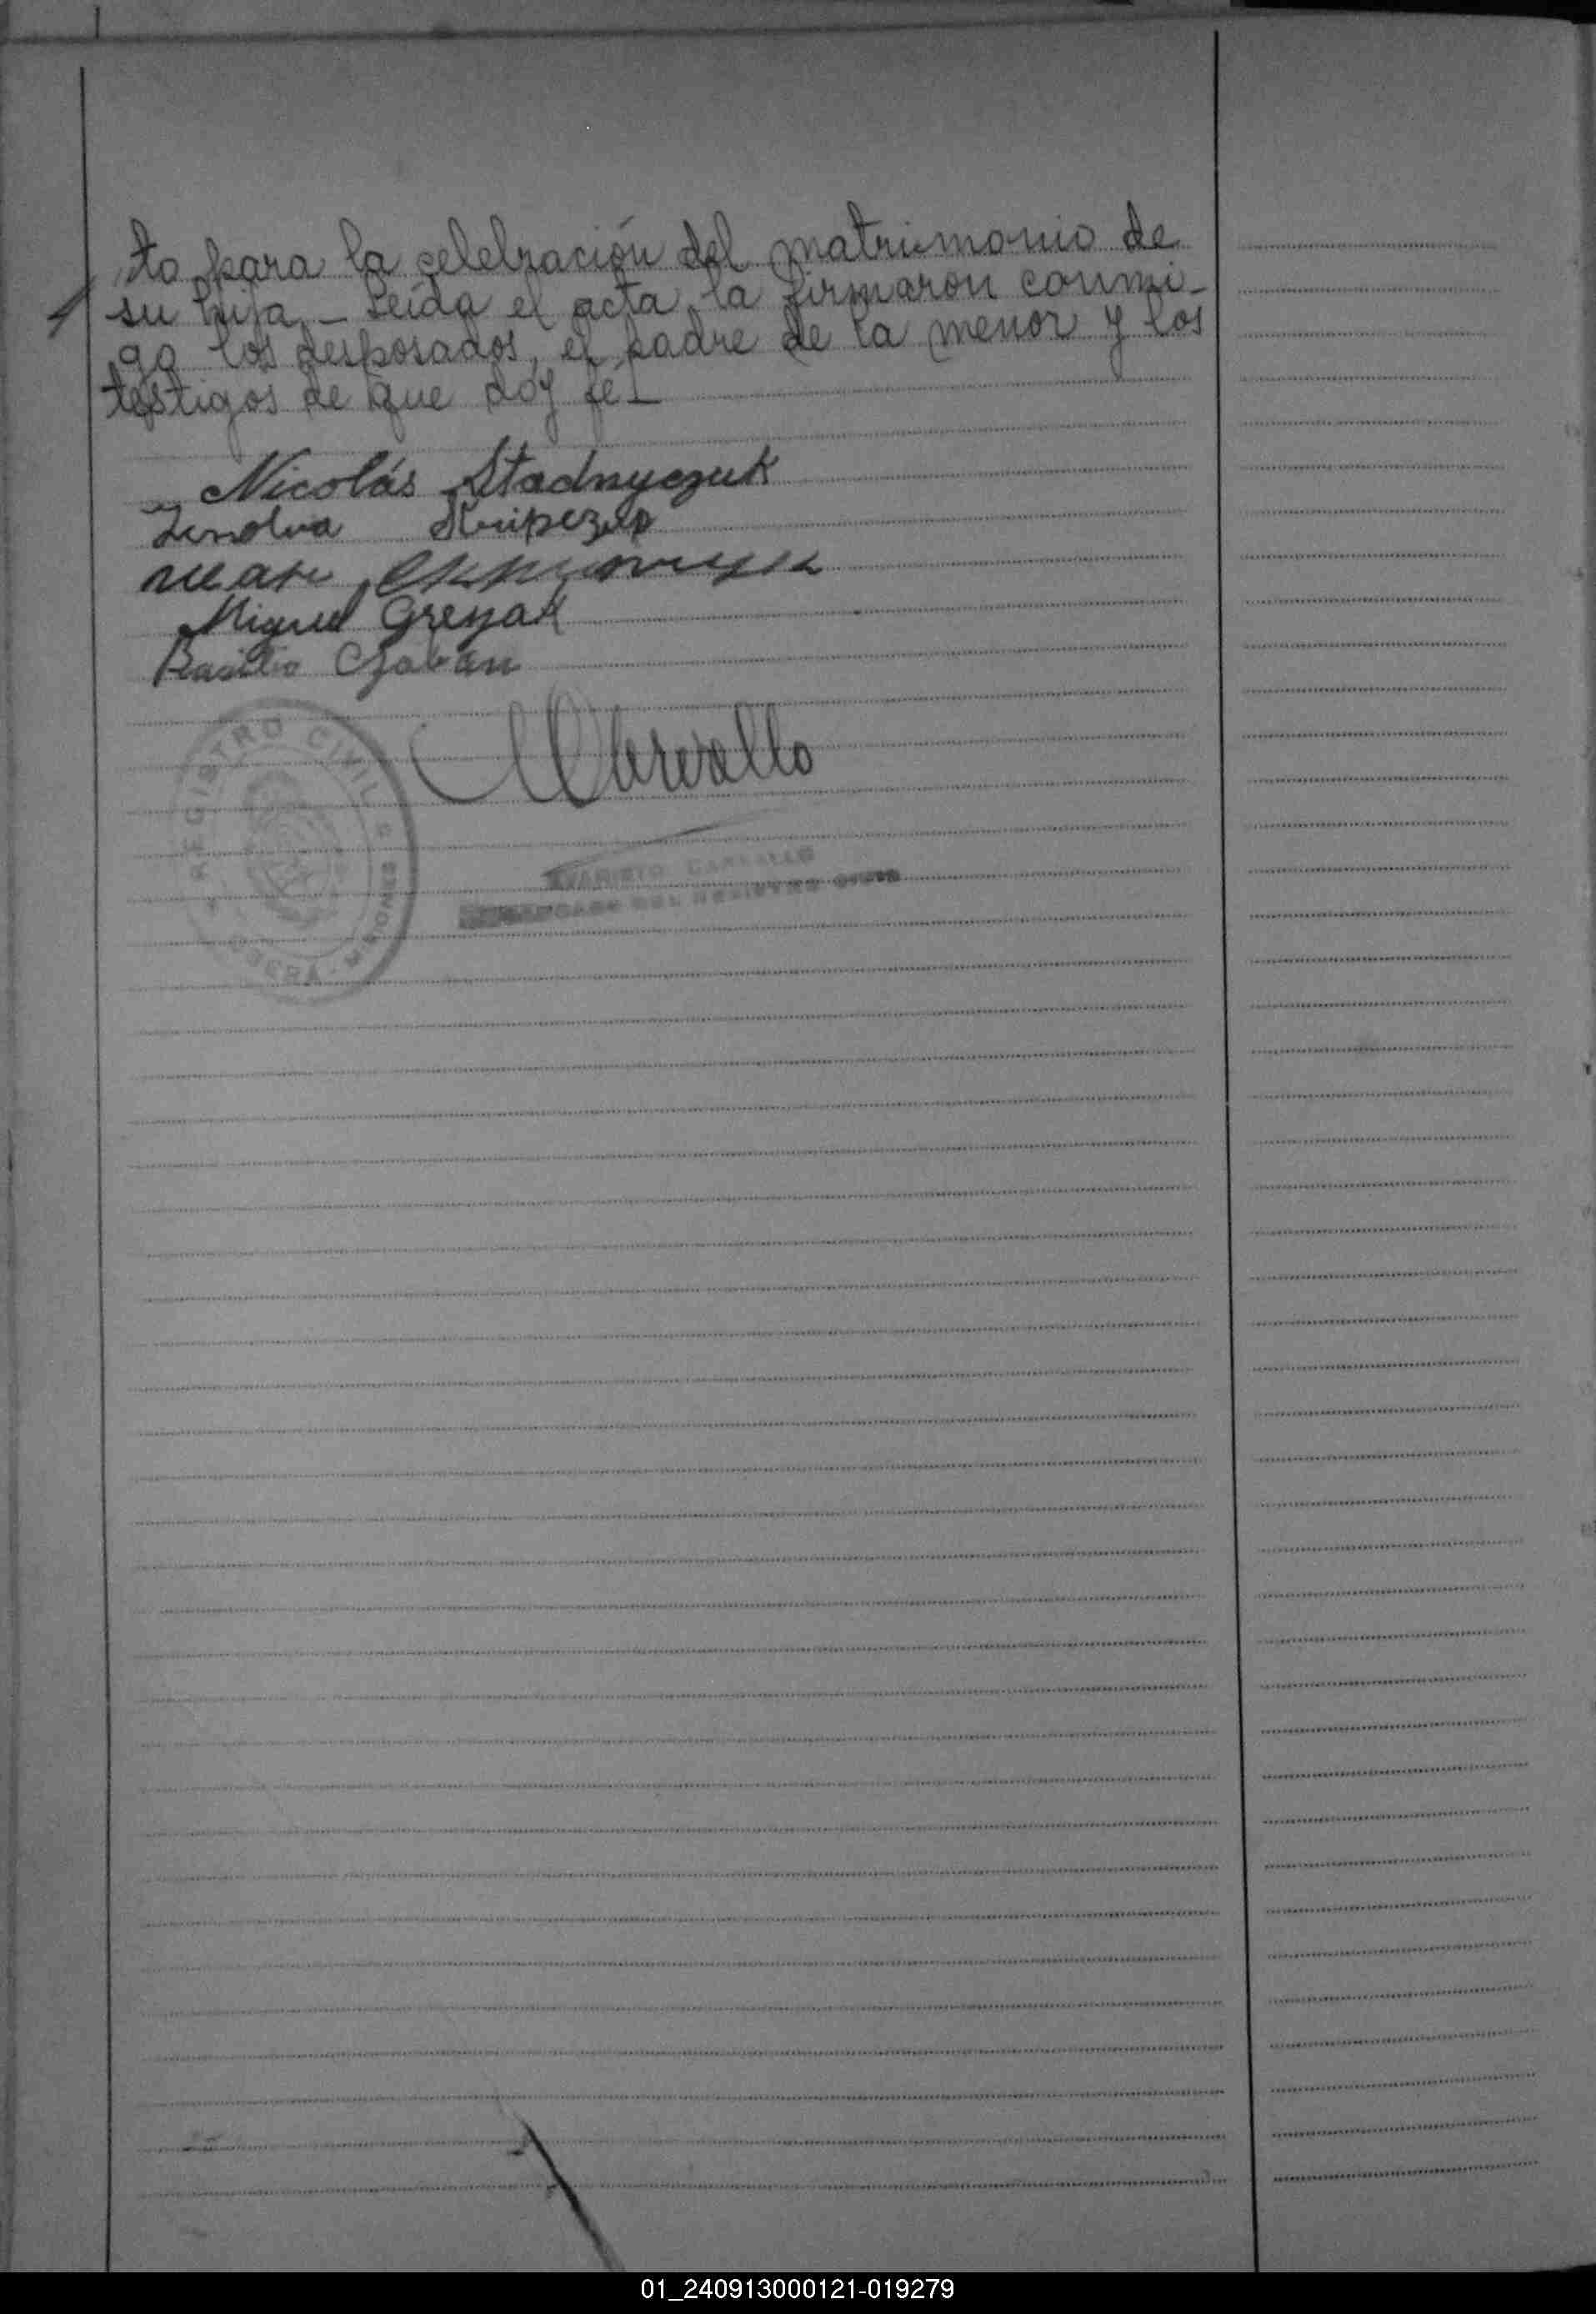 to para la celebración del matrimonio de
su hija,_ Leída el acta, la firmaron conmi_
go los desposados, el padre de la menor y los
testigos de que doy fé_
Nicolás Stadnyczuk
Miguel Greyak
Basilio Czaban
Carvallo
REGISTRO CIVIL
EVARISTO CARVALLO
ENCARGADO DEL REGISTRO CIVIL
01_240913000121-019279